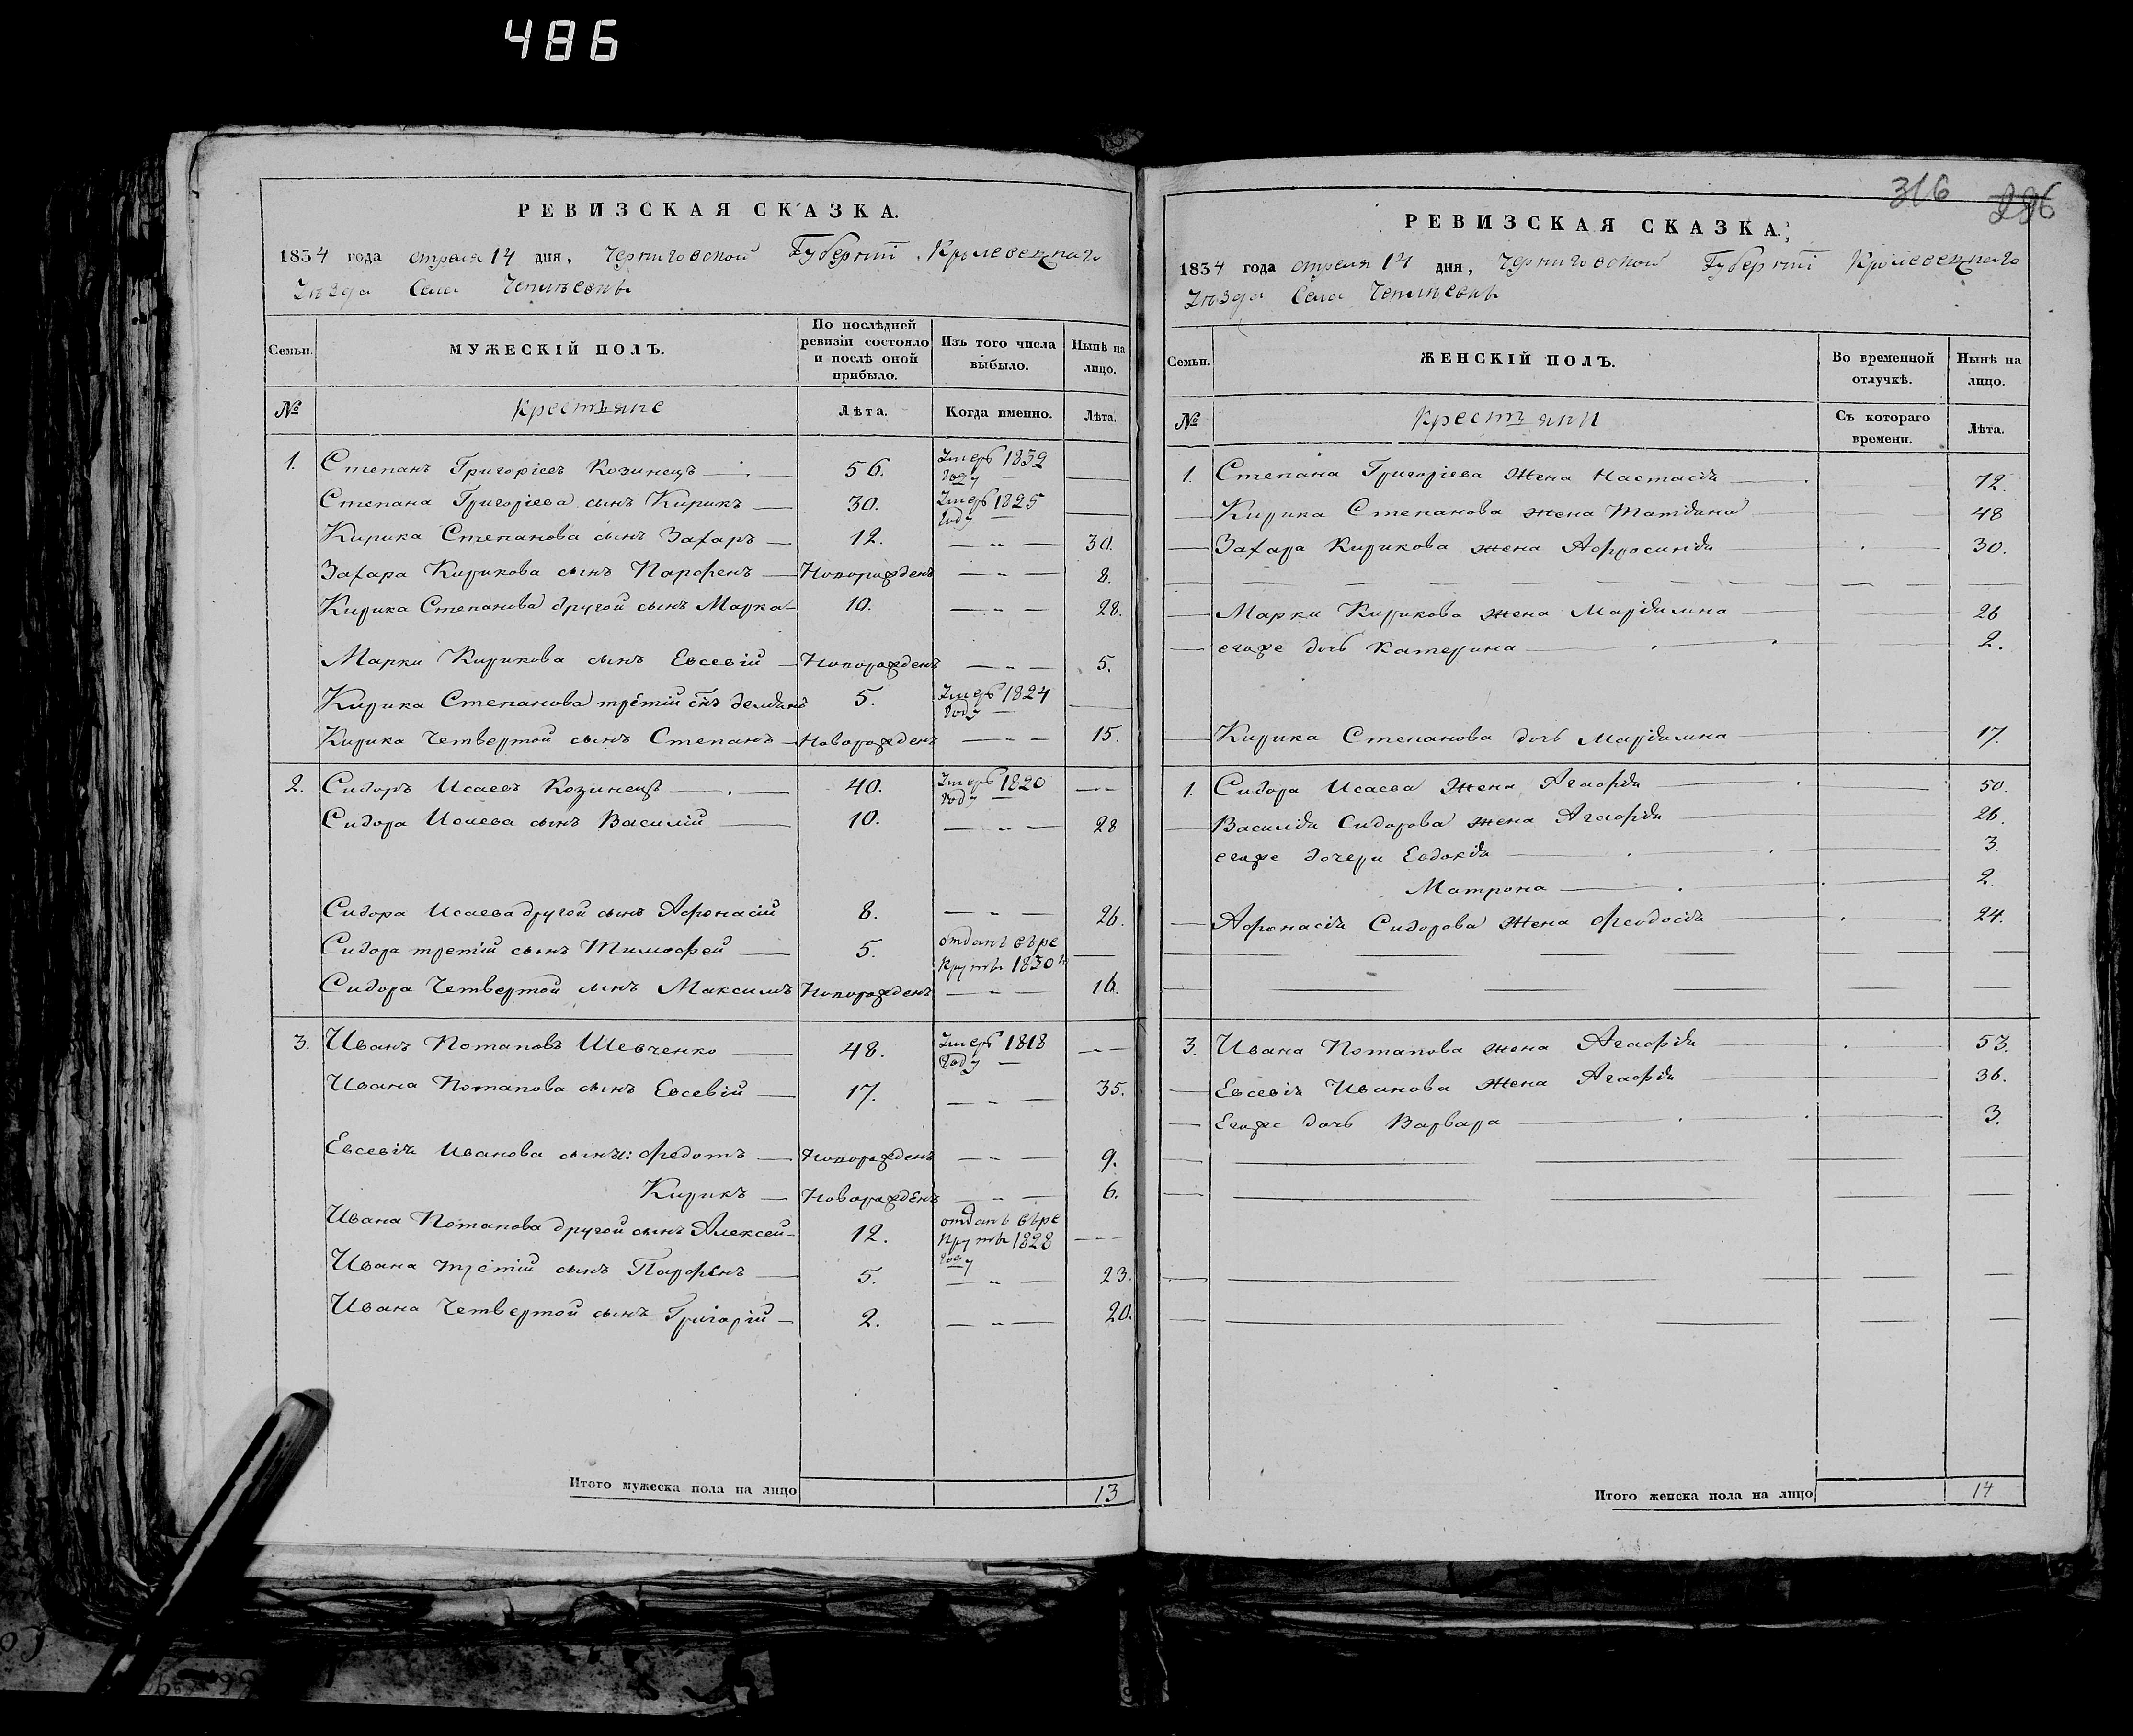 486
РЕВИЗСКАЯ СКАЗКА.
1834 года апреля 14 дня, Черниговской Губернiи Кролевецкаго
Уезда Села
Семьи. МУЖЕСКІЙ ПОЛЪ. По послѣдней ревизіи состояло и послѣ оной прибыло. Изъ того числа выбыло. Нынѣ на лицо.
№ Крестьяне Лѣта. Когда именно. Лѣта.
1. Степанъ Григоріевъ Козинецъ 56. Умеръ 1832 году
Степана Григоріева сынъ Кирикъ 30. Умеръ 1825 году
Кирика Степанова сынъ Захаръ 12. 30.
Захара Кирикова сынъ Парфенъ Новорожденъ 8.
Кирика Степанова другой сынъ Марка 10. 28.
Марки Кирикова сынъ Евсевій Новорожденъ 5.
Кирика Степанова третій снъ Демянъ 5. Умеръ 1824 году
Кирика Четвертой сынъ Степанъ Новорожденъ 15.
2. Сидоръ Исаевъ Козинецъ 40. Умеръ 1820 году
Сидора Исаева сынъ Василій 10. 28
Сидора Исаева другой сынъ Афонасій 8. 26.
Сидора третій сынъ Тимофей 5. отданъ въ рекруты 1830 го
Сидора Четвертой сынъ Максимъ Новорожденъ 16.
3. Иванъ Потаповъ Шевченко 48. Умеръ 1818 году
Ивана Потапова сынъ Евсевій 17. 35.
Евсевія Иванова сыны: Федотъ Новорожденъ 9.
Кирикъ Новорожденъ 6.
Ивана Потапова другой сынъ Алексей 12. отданъ въ рекруты 1828 году
Ивана третій сынъ Парфенъ 5. 23.
Ивана Четвертой сынъ Григорій 2. 20.
Итого мужеска пола на лицо 13
316
РЕВИЗСКАЯ СКАЗКА.
1834 года апреля 14 дня, Черниговской Губерніи Кролевецкаго
Уезда Села
Семьи. ЖЕНСКІЙ ПОЛЪ. Во временной отлучкѣ. Нынѣ на лицо.
№ Крестьяни Съ котораго времени. Лѣта.
1. Степана Григоріева жена Настасія 72.
Кирика Степанова жена Татіяна 48
Захара Кирикова жена Афросинія 30.
Марки Кирикова жена Маріямна 26
егоже дочь Катерина 2.
Кирика Степанова дочь Маріямна 17.
1. Сидора Исаева Жена Агафія 50.
Василія Сидорова жена Агафія 26.
егоже дочери Евдокія 3.
Матрона 2.
Афонасія Сидорова Жена Феодосія 24.
3. Ивана Потапова жена Агафія 53.
Евсевія Иванова Жена Агафія 36.
Егоже дочь Варвара 3.
Итого женска пола на лицо 14